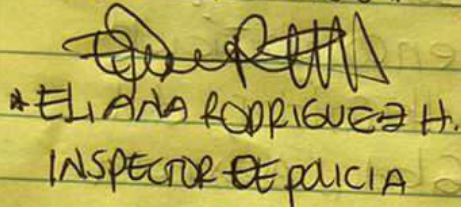 * ELIANA RODRIGUEZ H.
INSPECTOR DE POLICIA